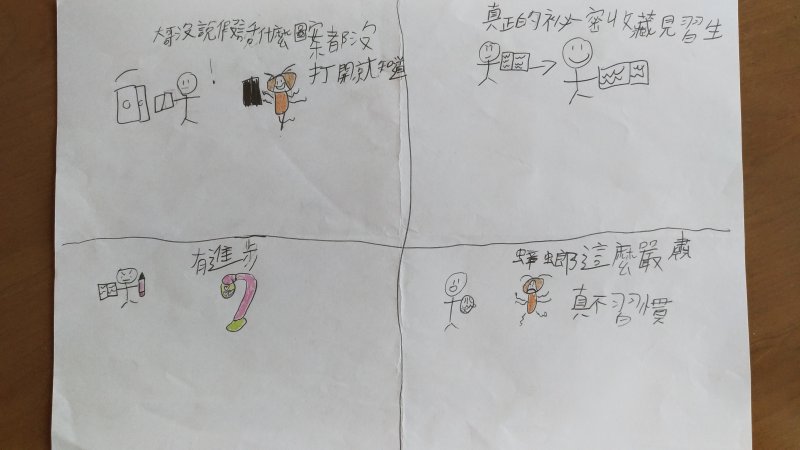 大哥沒說假話什麼圖案都沒
打開就知道
真正的祕密收藏見習生
有進步
蟑螂這麼嚴肅
真不習慣